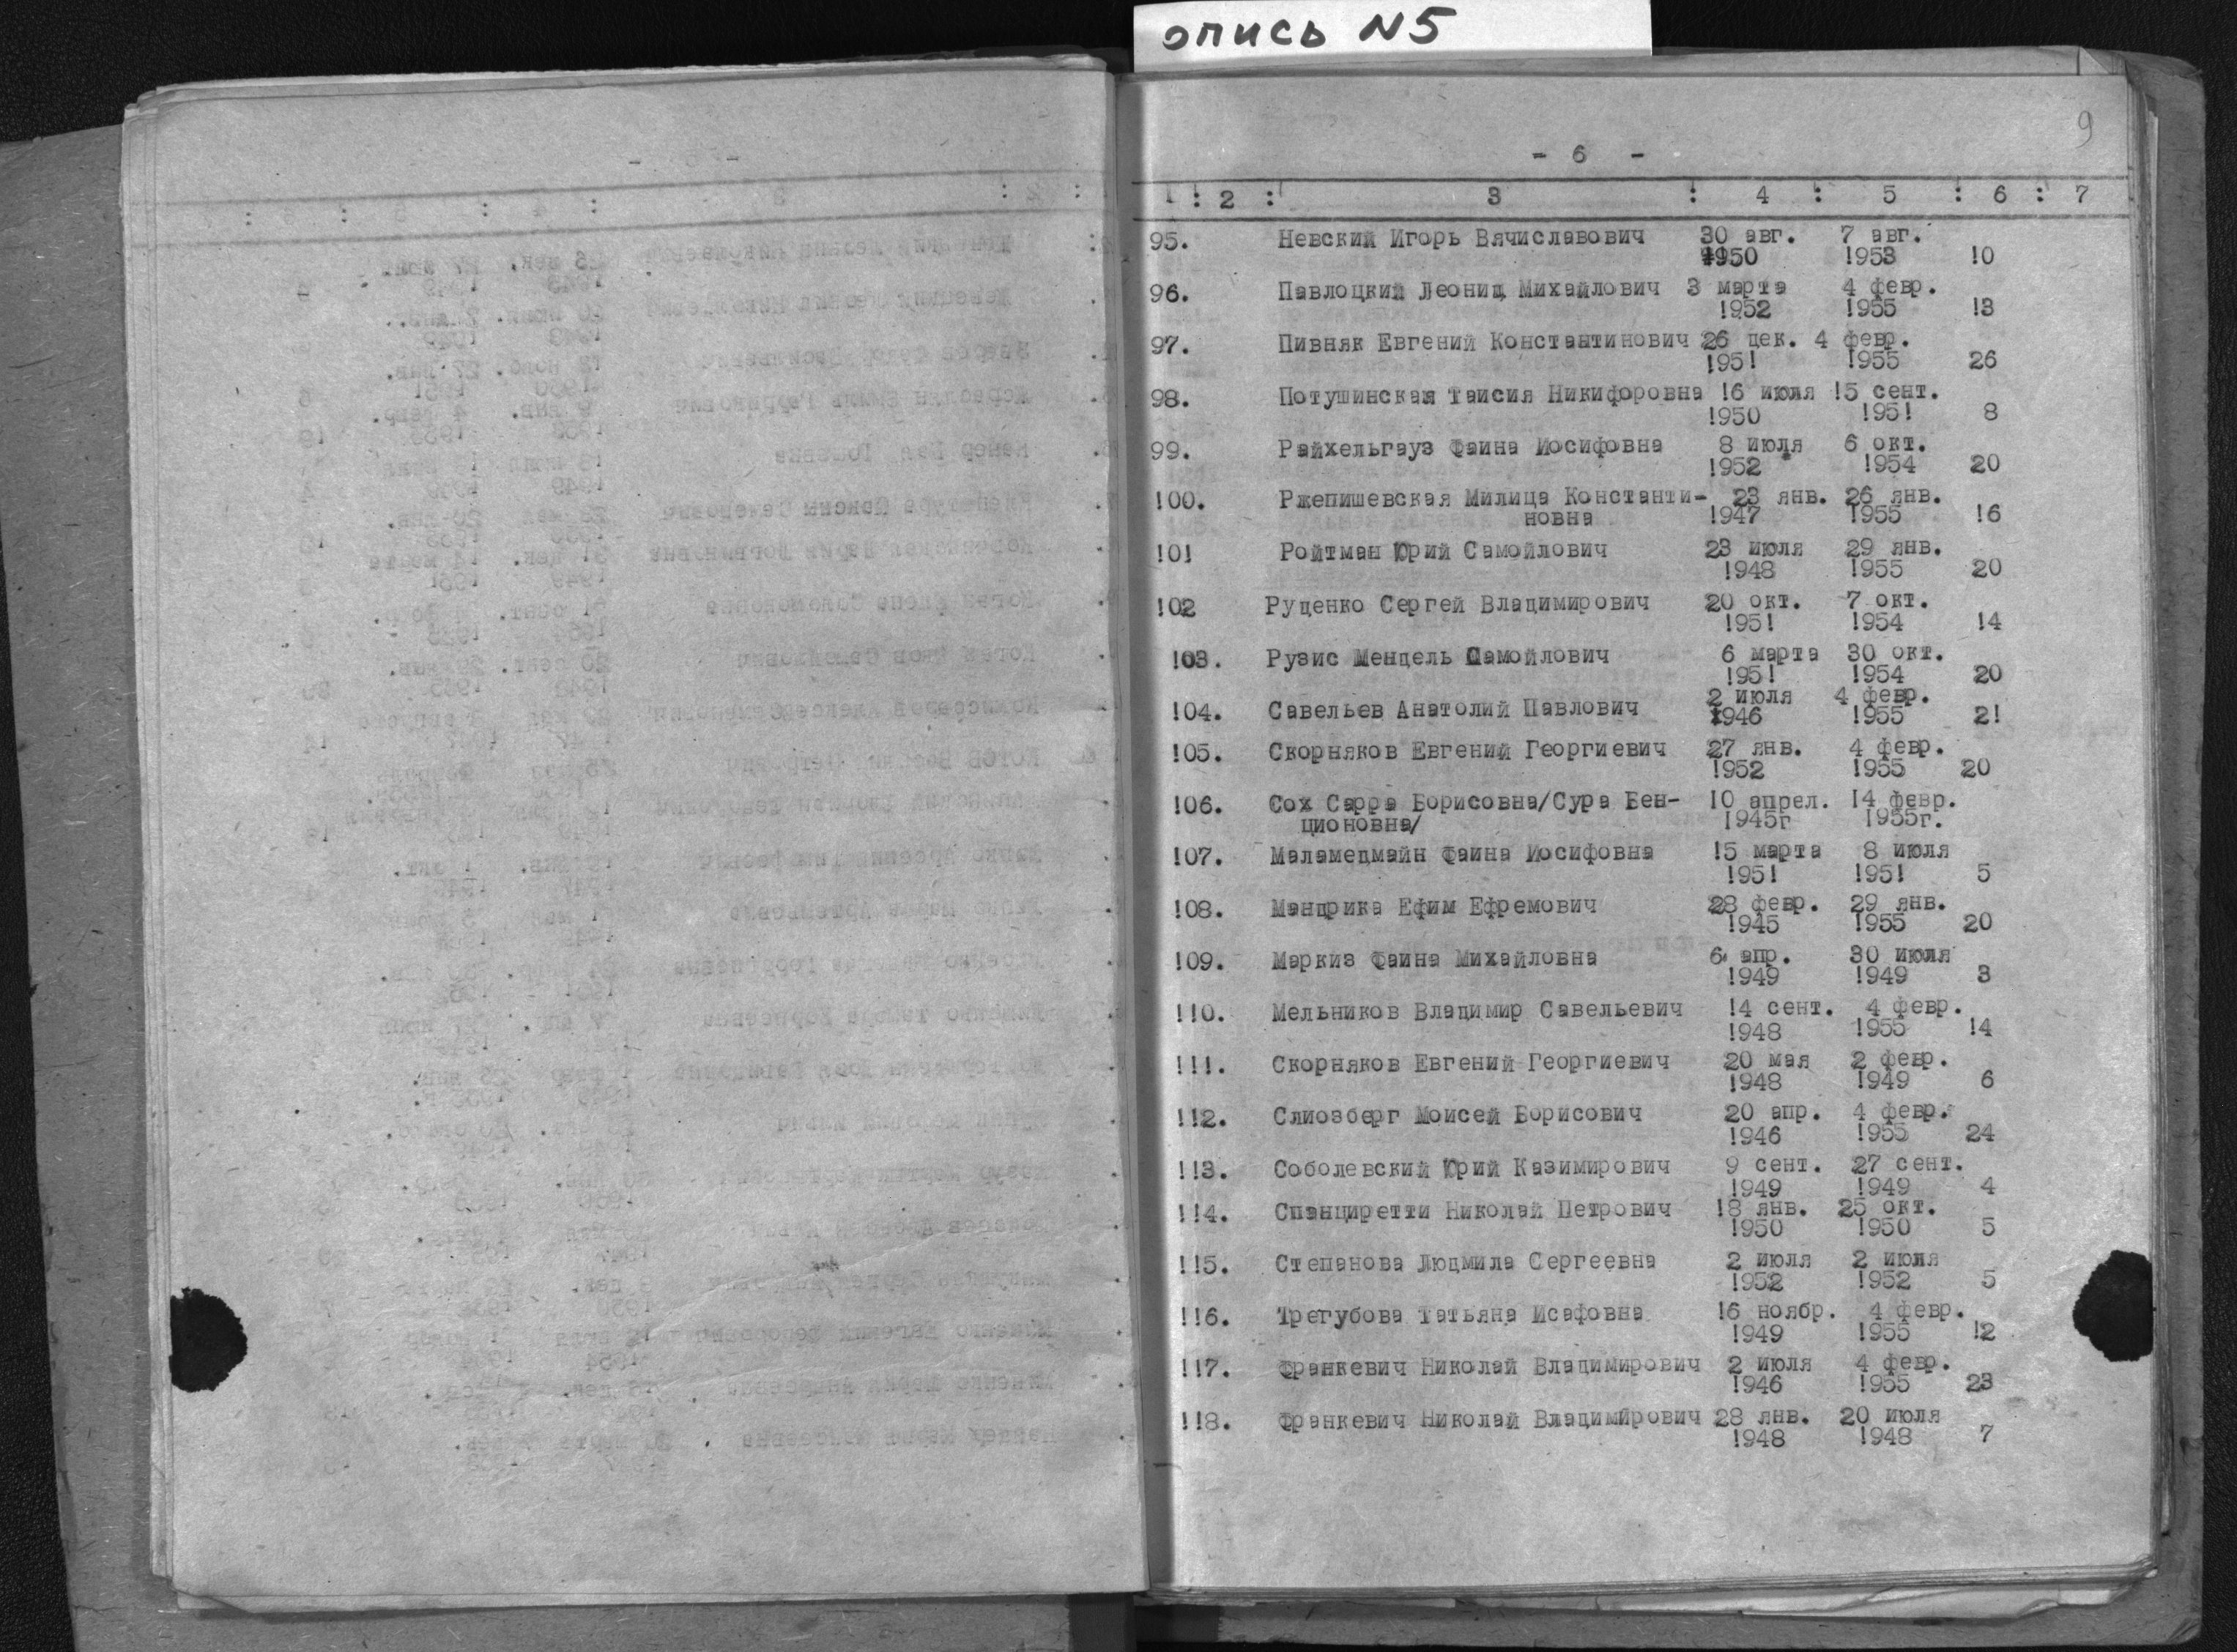 опись N5
9
- 6 -
1 : 2 : 3 : 4 : 5 : 6 : 7
95. Невский Игорь Вячиславович 30 авг. 7 авг.
1950 1953 10
96. Павлоцкий Леонид Михайлович 3 марта 4 февр.
1952 1955 13
97. Пивняк Евгений Константинович 26 дек. 4 февр.
1951 1955 26
98. Потушинская Таисия Никифоровна 16 июля 15 сент.
1950 1951 8
99. Райхельгауз Фаина Иосифовна 8 июля 6 окт.
1952 1954 20
100. Ржепишевская Милица Константи- 23 янв. 26 янв.
новна 1947 1955 16
101 Ройтман Юрий Самойлович 23 июля 29 янв.
1948 1955 20
102 Руденко Сергей Владимирович 20 окт. 7 окт.
1951 1954 14
103. Рузис Мендель Самойлович 6 марта 30 окт.
1951 1954 20
104. Савельев Анатолий Павлович 2 июля 4 февр.
1946 1955 21
105. Скорняков Евгений Георгиевич 27 янв. 4 февр.
1952 1955 20
106. Сох Сарра Борисовна/Сура Бен- 10 апрел. 14 февр.
ционовна/ 1945г 1955г.
107. Маламедмайн Фаина Иосифовна 15 марта 8 июля
1951 1951 5
108. Мандрика Ефим Ефремович 28 февр. 29 янв.
1945 1955 20
109. Маркиз Фаина Михайловна 6 апр. 30 июля
1949 1949 3
110. Мельников Владимир Савельевич 14 сент. 4 февр.
1948 1955 14
111. Скорняков Евгений Георгиевич 20 мая 2 февр.
1948 1949 6
112. Слиозберг Моисей Борисович 20 апр. 4 февр.
1946 1955 24
113. Соболевский Юрий Казимирович 9 сент. 27 сент.
1949 1949 4
114. Спандиретти Николай Петрович 18 янв. 25 окт.
1950 1950 5
115. Степанова Людмила Сергеевна 2 июля 2 июля
1952 1952 5
116. Трегубова Татьяна Исафовна 16 ноябр. 4 февр.
1949 1955 12
117. Франкевич Николай Владимирович 2 июля 4 февр.
1946 1955 23
118. Франкевич Николай Владимирович 28 янв. 20 июля
1948 1948 7